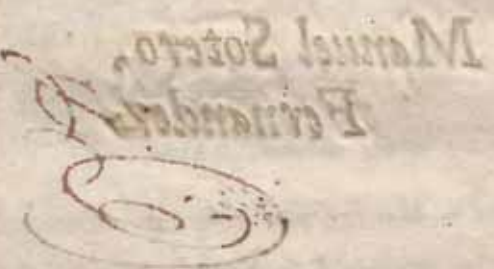 Manuel Sotero,
Fernandez